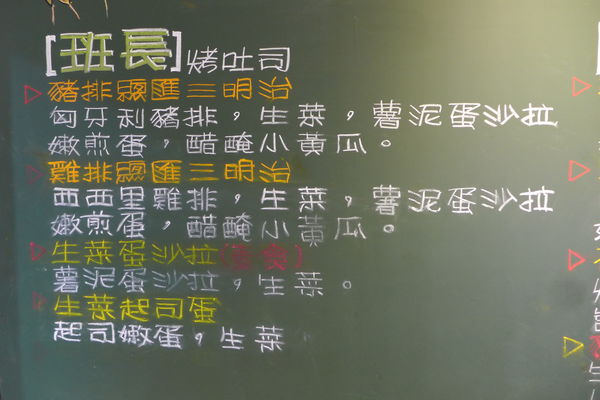 [班長]烤吐司
豬排總匯三明治
匈牙利豬排，生菜，薯泥蛋沙拉
嫩煎蛋，醋醃小黃瓜。
雞排總匯三明治
西西里雞排，生菜，薯泥蛋沙拉
嫩煎蛋，醋醃小黃瓜。
生菜蛋沙拉(全食)
薯泥蛋沙拉，生菜。
生菜起司蛋
起司嫩蛋，生菜